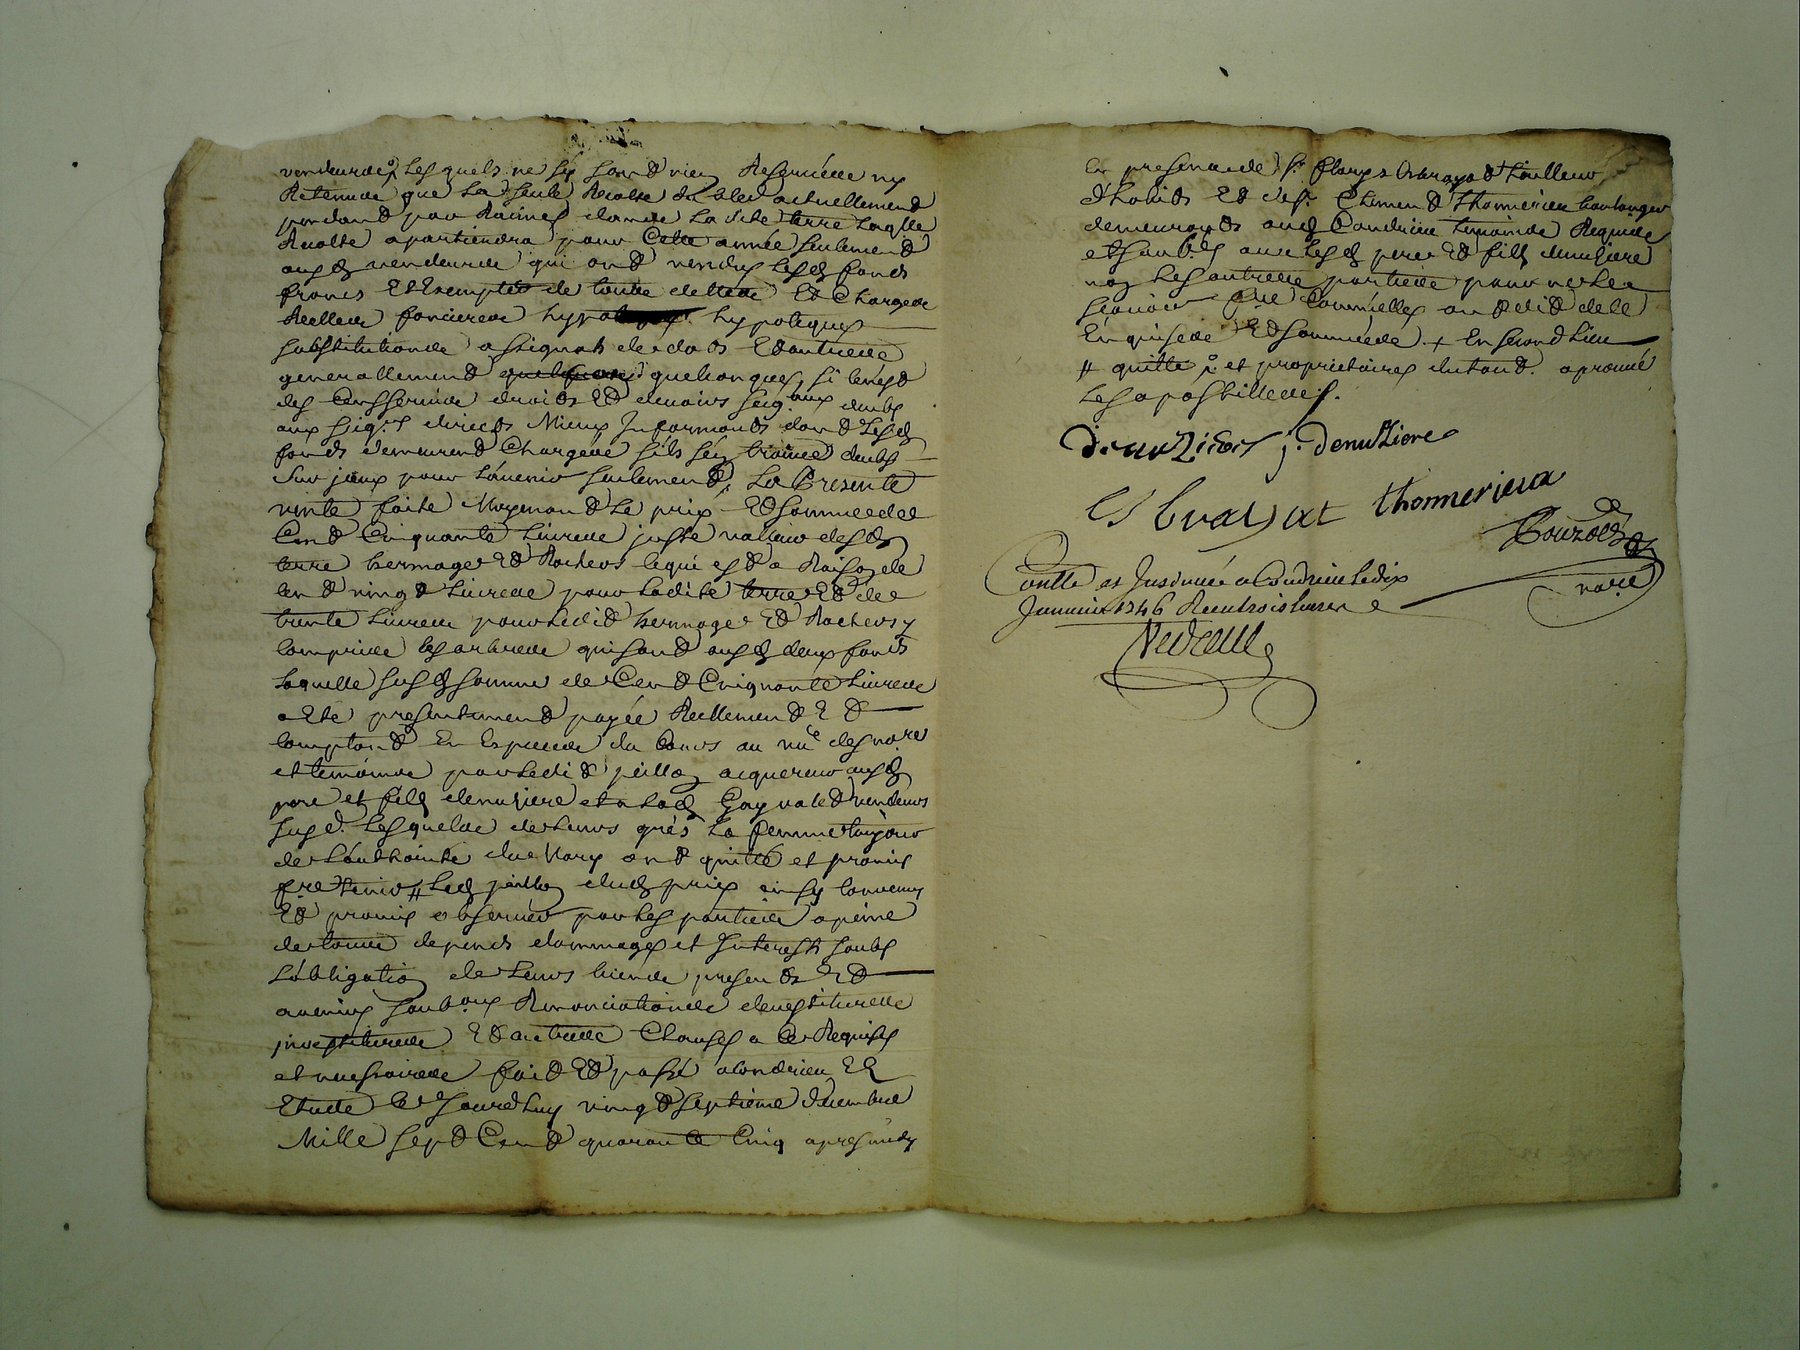 vendeurs lesquels ne sy sont rien Reservée ny
Retenue que la seule Recolte du bled actuellement
pendant par Racines dans la dite terre laqlle
Recolte apartiendra pour Cette année seulement
auxd vendeurs qui ont vendus lesd fonds
francs Et Exempts de toutte dettes Et Charges
Reelles foncieres hypoteques
substitutions assignats de dots Et autres
generallement quelconques, si ce n'est
des Cens servis droits Et devoirs seig.aux deubs
aux seig.rs directs Mieux Informants dont Lesd
fonds demeurent Chargés s'ils s'en treuve deubs
Sur jceux pour l'avenir seulement, La Presente
vente faite Moyenant Le prix Et somme de
Cent Cinquante Livres juste valleur desd
terre hermage Et Rochers lequi est a Raison de
cent vingt Livres pour ladite terre Et de
trente Livres pour ledit hermage Et Rochers y
compris les arbres qui sont auxd deux fonds
laquelle susd somme de Cent Cinquante Livres
a Eté presentement payée Reellement Et
comptant En Espesses du Cours au vu des no.res
et temoins par ledit peillon acquereur auxd
pere et fils denuziere et a lad vendeurs
susd. Lesquels de leurs grés la femme toujour
de l'authorité du Mary ont quitté et promis
fre tenir # led peillon dud prix ainsy convenu
Et promis observer par les parties a peine
de tous depends dommages et Interests soubs
L'obligation de Leurs biens presents Et
avenirs soub.aux Renonciations devestitures
investitures Et autres Clauses a ce Requises
et necessaires fait Et passé a Condrieu Et
Etude Ce Jourd'huy vingt septieme decembre
Mille sept Cent quarante Cinq apres midy
En presence de s.r tailleur
d'habits Et de s.r Climent thomerieu boulanger
demeurants aud Condrieu temoins Requis
et soub.és avec Lesd pere Et fils denuziere
non les autres parties pour ne le
scavoir comme elles ont dit de ce
Enquises Et sommées + En second Lieu
# quitte et proprietaires dutout. aprouvé
Les apostilles /.
denuziere j. denuziere
thomerieux
Pouzols
no.re
Conllé et Jnsinué a Condrieu le dix
Janvier 1746 Reçu trois livres